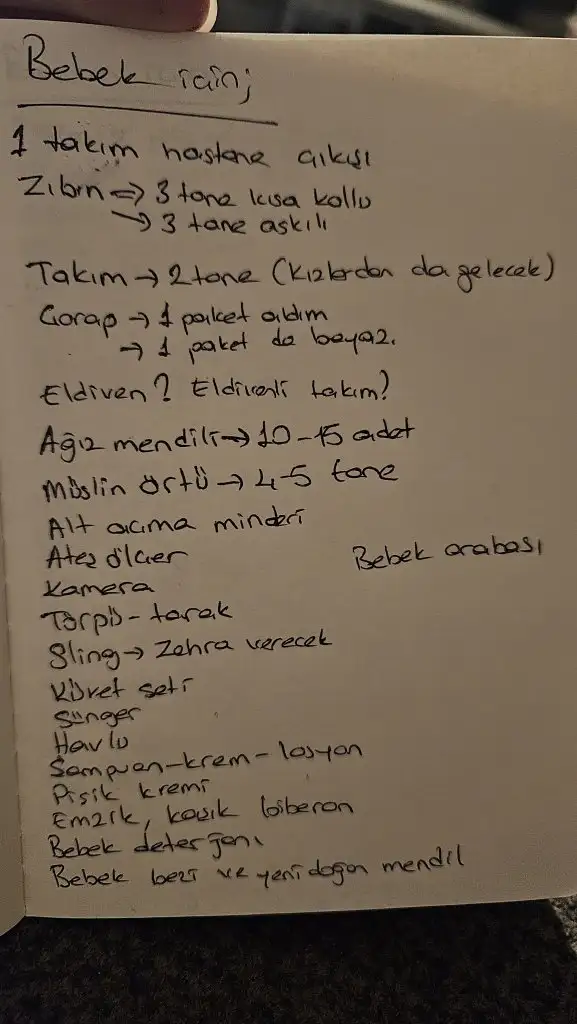 Bebek için;
1 takım hastane çıkışı
Zıbın => 3 tane kısa kollu
→ 3 tane askılı
Takım → 2 tane (Kızlardan da gelecek)
Çorap → 1 paket aldım
→ 1 paket da beyaz.
Eldiven? Eldivenli takım?
Ağız mendili → 10-15 adet
Müslin örtü → 4-5 tane
Alt açma minderi
Ateş ölçer
Bebek arabası
Kamera
Törpü - tarak
Sling → Zehra verecek
Küvet seti
Sünger
Havlu
Şampuan-krem-losyon
Pişik kremi
Emzik, kaşık biberon
Bebek deterjanı
Bebek bezi ve yenidoğan mendil